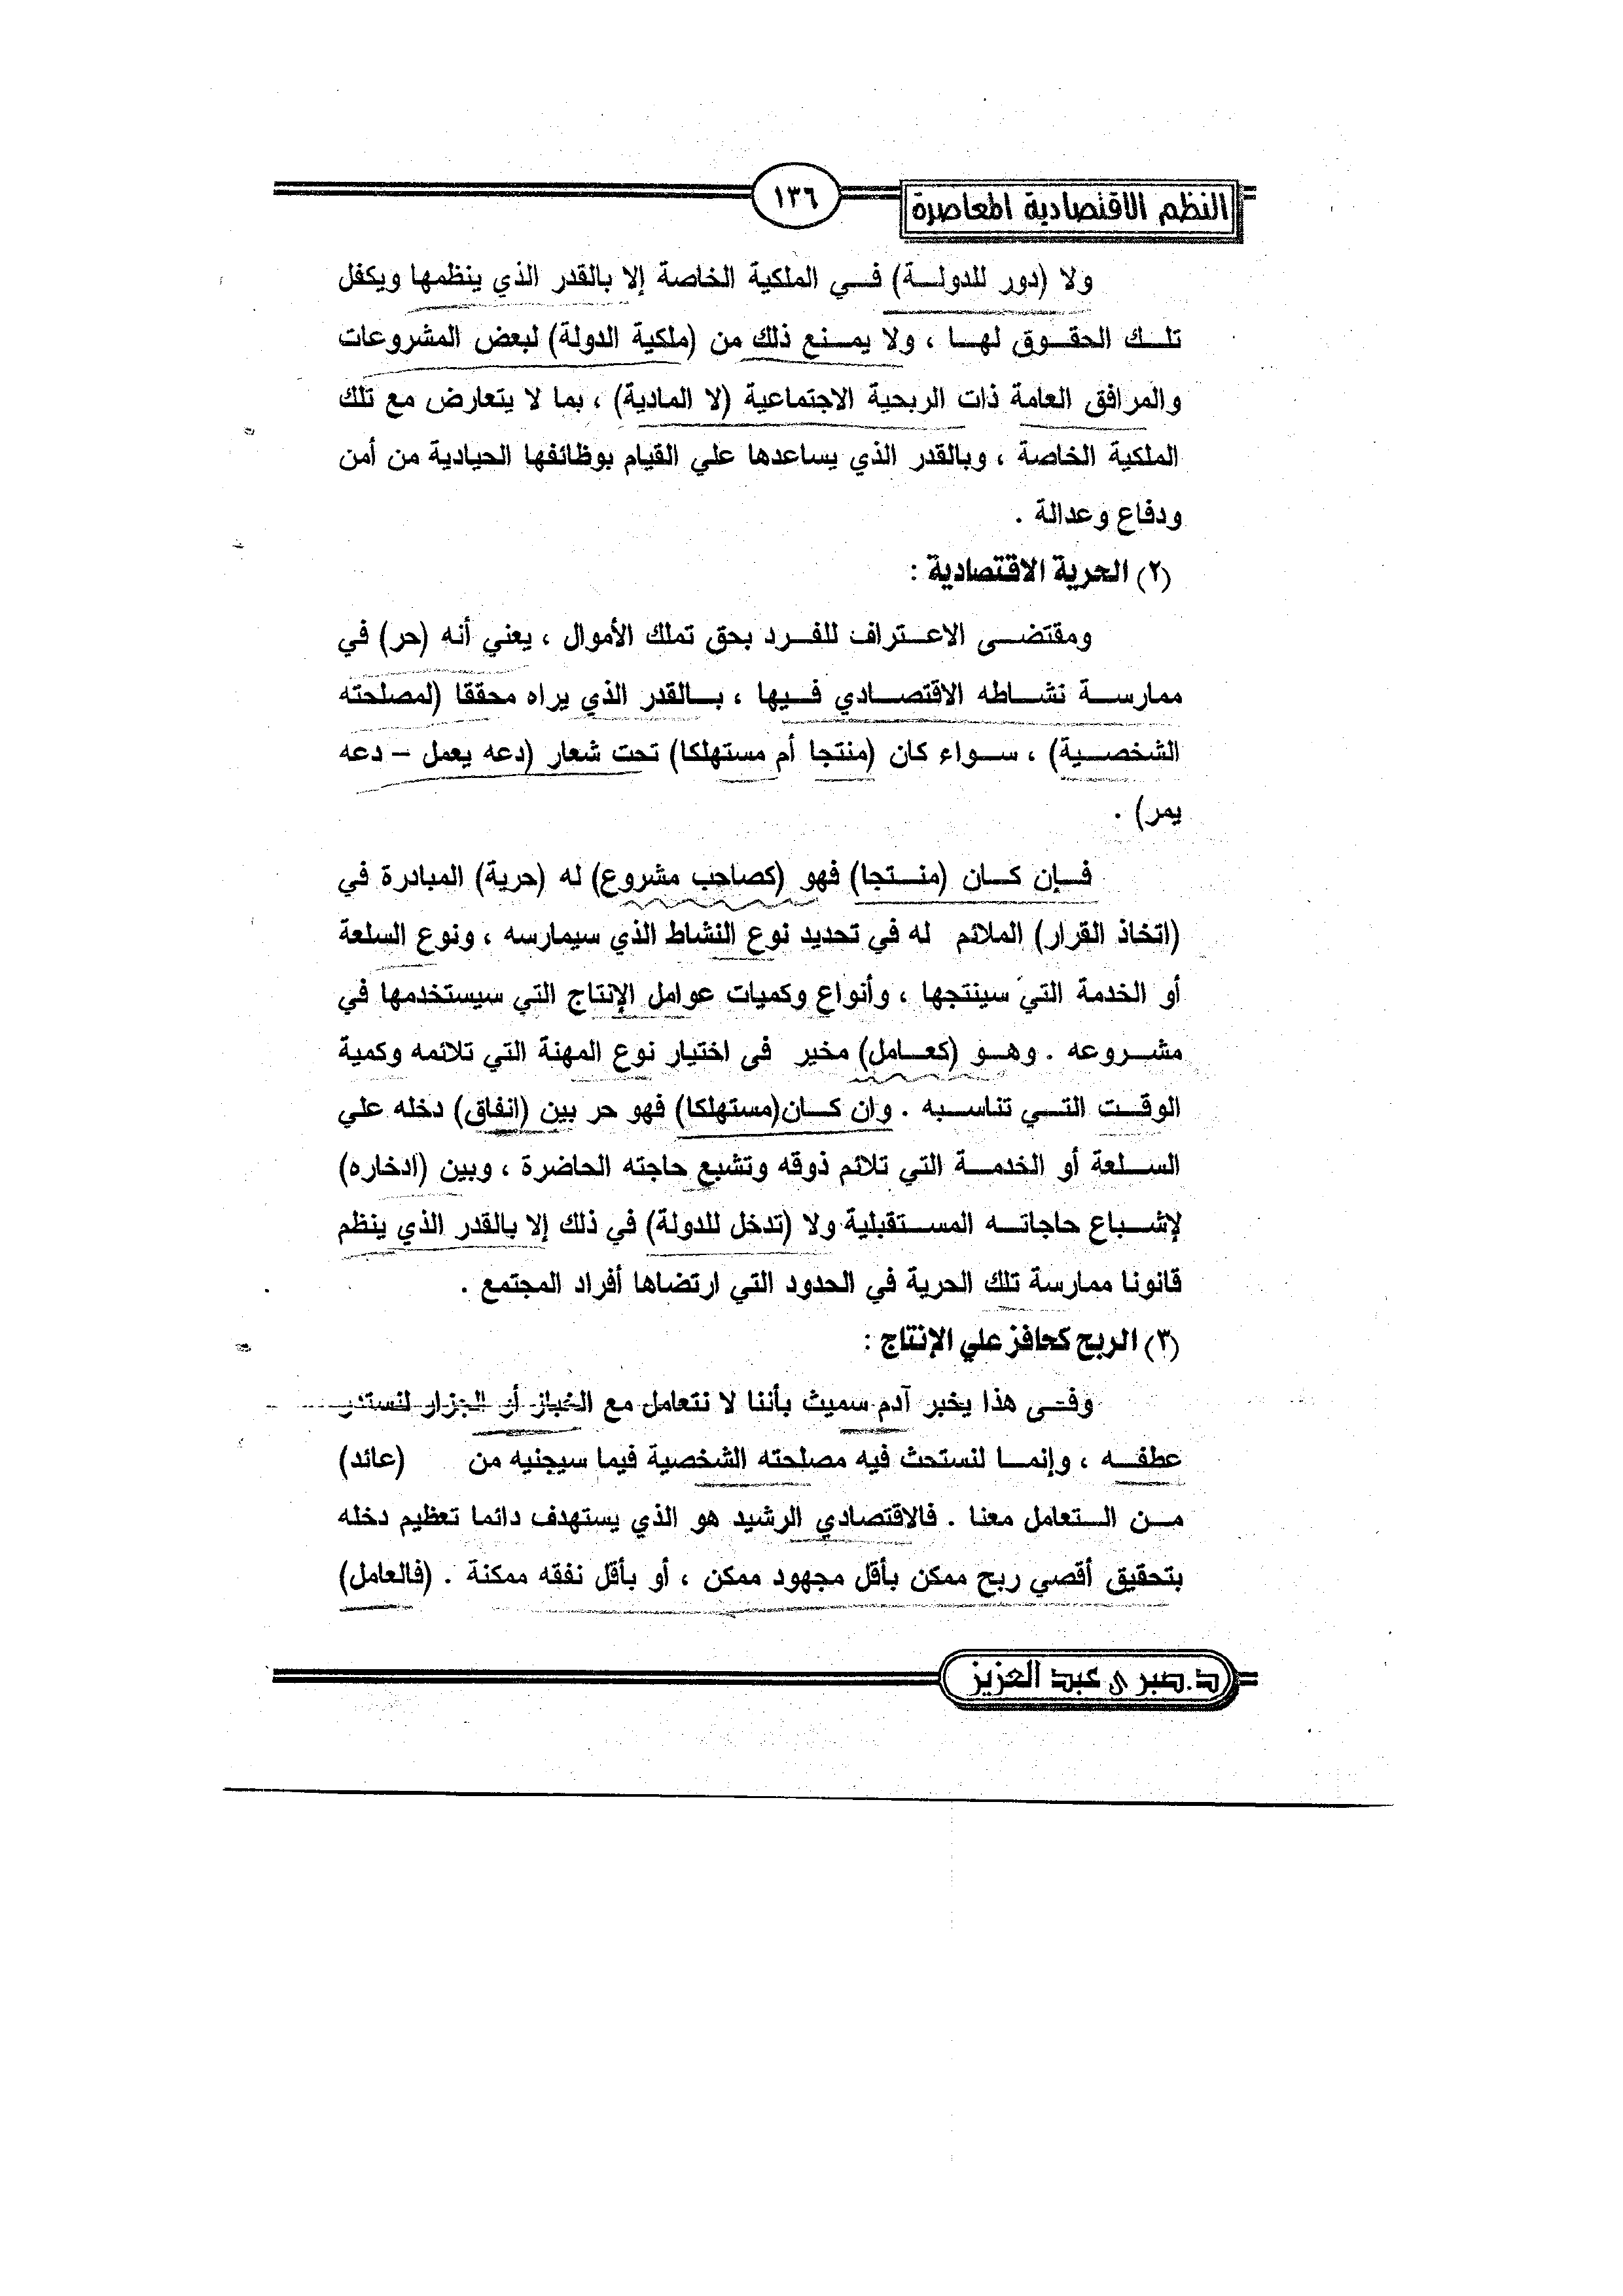 النظم الاقتصادية المعاصرة
١٣٦
ولا (دور للدولة) في الملكية الخاصة إلا بالقدر الذي ينظمها ويكفل
تلك الحقوق لها ، ولا يمنع ذلك من (ملكية الدولة) لبعض المشروعات
والمرافق العامة ذات الربحية الاجتماعية (لا المادية) ، بما لا يتعارض مع تلك
الملكية الخاصة ، وبالقدر الذي يساعدها علي القيام بوظائفها الحيادية من أمن
ودفاع وعدالة .
(٢) الحرية الاقتصادية :
ومقتضى الاعتراف للفرد بحق تملك الأموال ، يعني أنه (حر) في
ممارسة نشاطه الاقتصادي فيها ، بالقدر الذي يراه محققا (لمصلحته
الشخصية) ، سواء كان (منتجا أم مستهلكا) تحت شعار (دعه يعمل – دعه
يمر) .
فإن كان (منتجا) فهو (كصاحب مشروع) له (حرية) المبادرة في
(اتخاذ القرار) الملائم له في تحديد نوع النشاط الذي سيمارسه ، ونوع السلعة
أو الخدمة التي سينتجها ، وأنواع وكميات عوامل الإنتاج التي سيستخدمها في
مشروعه . وهو (كعامل) مخير فى اختيار نوع المهنة التي تلائمه وكمية
الوقت التي تناسبه . وان كان(مستهلكا) فهو حر بين (انفاق) دخله علي
السلعة أو الخدمة التي تلائم ذوقه وتشبع حاجته الحاضرة ، وبين (ادخاره)
لإشباع حاجاته المستقبلية ولا (تدخل للدولة) في ذلك إلا بالقدر الذي ينظم
قانونا ممارسة تلك الحرية في الحدود التي ارتضاها أفراد المجتمع .
(٣) الربح كحافز علي الإنتاج :
وفى هذا يخبر آدم سميث بأننا لا نتعامل مع الخباز أو الجزار لنستدر
عطفه ، وإنما لنستحث فيه مصلحته الشخصية فيما سيجنيه من (عائد)
من التعامل معنا . فالاقتصادي الرشيد هو الذي يستهدف دائما تعظيم دخله
بتحقيق أقصي ربح ممكن بأقل مجهود ممكن ، أو بأقل نفقه ممكنة . (فالعامل)
د.صبرى عبد العزيز